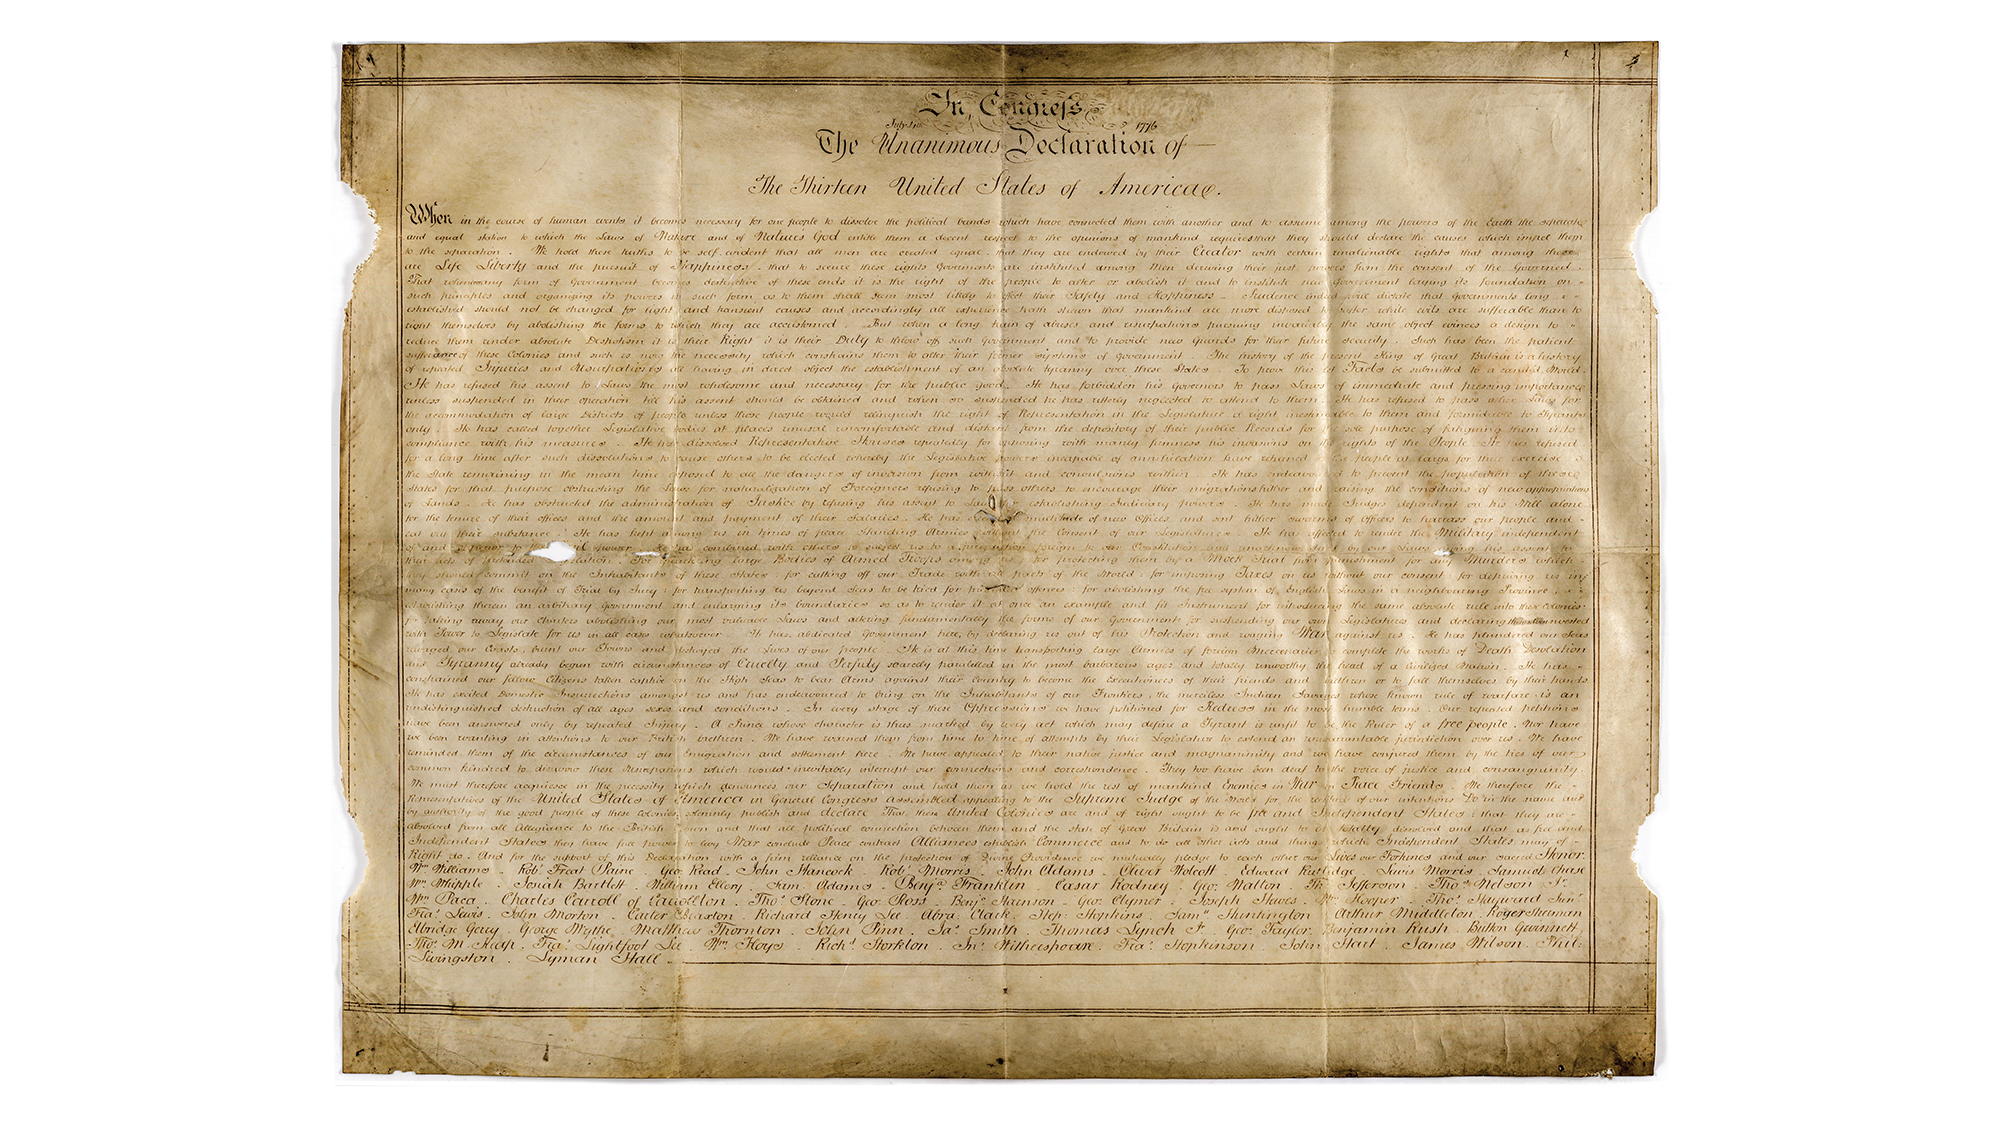 In Congress
July 4th 1776
The Unanimous Declaration of
The Thirteen United States of America
When in the course of human events it becomes necessary for one people to dissolve the political bands which have connected them with another and to assume among the powers of the Earth the separate
and equal station to which the Laws of Nature and of Nature's God entitle them a decent respect to the opinions of mankind requires that they should declare the causes which impel them
to the separation . We hold these truths to be self evident that all men are created equal that they are endowed by their Creator with certain unalienable rights that among these
are Life Liberty and the pursuit of Happiness . that to secure these rights Governments are instituted among Men deriving their just powers from the consent of the Governed .
That whenever any form of Government becomes destructive of these ends it is the right of the people to alter or abolish it and to institute new Government laying its foundation on
such principles and organizing its powers in such form as to them shall seem most likely to effect their Safety and Happiness . Prudence indeed will dictate that Governments long
established should not be changed for light and transient causes and accordingly all experience hath shewn that mankind are more disposed to suffer while evils are sufferable than to
right themselves by abolishing the forms to which they are accustomed . But when a long train of abuses and usurpations pursuing invariably the same object evinces a design to
reduce them under absolute Despotism it is their Right it is their Duty to throw off such Government and to provide new Guards for their future security . Such has been the patient
sufferance of these Colonies and such is now the necessity which constrains them to alter their former Systems of Government . The history of the present King of Great Britain is a history
of repeated Injuries and Usurpations all having in direct object the establishment of an absolute tyranny over these States . To prove this let Facts be submitted to a candid World .
He has refused his assent to Laws the most wholesome and necessary for the public good . He has forbidden his Governors to pass Laws of immediate and pressing importance
unless suspended in their operation till his assent should be obtained and when so suspended he has utterly neglected to attend to them . He has refused to pass other Laws for
the accommodation of large Districts of people unless those people would relinquish the right of Representation in the Legislature a right inestimable to them and formidable to Tyrants
only . He has called together Legislative bodies at places unusual uncomfortable and distant from the depository of their public Records for sole purpose of fatiguing them into
compliance with his measures . He has dissolved Representative Houses repeatedly for opposing with manly firmness his invasions on rights of the People . He has refused
for a long time after such dissolutions to cause others to be elected whereby the Legislative powers incapable of annihilation have returned people at large for their exercise
the State remaining in the mean time exposed to all the dangers of invasion from without and convulsions within . He has endeavoured to prevent the population of these
States for that purpose obstructing the Laws for naturalization of Foreigners refusing to pass others to encourage their migrations hither and raising the conditions of new appropriations
of Lands . He has obstructed the administration of Justice by refusing his assent to Laws establishing Judiciary powers . He has made Judges dependent on his Will alone
for the tenure of their offices and the amount and payment of their Salaries . He has multitude of new Offices and sent hither swarms of Officers to harrass our people and
eat out their substance . He has kept among us in times of peace Standing Armies the Consent of our Legislatures . He has affected to render the Military independent
of and Superior power combined with others to subject us to a jurisdiction foreign to our Constitution and by our Laws his assent to
their acts of pretended . For quartering large Bodies of Armed Troops among us for protecting them by a Mock Trial from punishment for any Murders which
they should commit on the Inhabitants of these States : for cutting off our Trade with all parts of the World : for imposing Taxes on us without our consent for depriving us in
many cases of the benefit of Trial by Jury : for transporting us beyond Seas to be tried for offences : for abolishing the free system of English Laws in a neighbouring Province
establishing therein an arbitrary Government and enlarging its boundaries so as to render it at once an example and fit Instrument for introducing the same absolute rule into these Colonies
taking away our Charters abolishing our most valuable Laws and altering fundamentally the forms of our Governments for suspending our own Legislatures and declaring themselves invested
with Power to Legislate for us in all cases whatsoever . He has abdicated Government here, by declaring us out of his Protection and waging War against us . He has plundered our Seas
ravaged our Coasts, burnt our Towns and destroyed the Lives of our people . He is at this time transporting large Armies of foreign Mercenaries complete the works of Death Desolation
and Tyranny already begun with circumstances of Cruelty and Perfidy scarcely paralelled in the most barbarous ages and totally unworthy the head of a Civilized Nation . He has
constrained our fellow Citizens taken captive on the High Seas to bear Arms against their Country to become the Executioners of their friends and brethren or to fall themselves by their hands
He has excited Domestic Insurrections amongst us and has endeavoured to bring on the Inhabitants of our Frontiers, the merciless Indian Savages whose known rule of warfare is an
undistinguished destruction of all ages sexes and conditions . In every stage of these Oppressions we have petitioned for Redress in the most humble terms . Our repeated petitions
have been answered only by repeated Injury . A Prince whose character is thus marked by every act which may define a Tyrant is unfit to be the Ruler of a free people . Nor have
we been wanting in attentions to our British brethren . We have warned them from time to time of attempts by their Legislature to extend an unwarrantable jurisdiction over us . We have
reminded them of the circumstances of our Emigration and settlement here . We have appealed to their native justice and magnanimity and we have conjured them by the ties of our
common kindred to disavow these Usurpations which would inevitably interrupt our connections and correspondence . They too have been deaf to the voice of justice and consanguinity .
We must therefore acquiesce in the necessity which denounces our Separation and hold them as we hold the rest of mankind Enemies in War in Peace Friends . We therefore the
Representatives of the United States of America in General Congress assembled appealing to the Supreme Judge of the World for the rectitude of our intentions Do in the name and
by authority of the good people of these colonies solemnly publish and declare That these United Colonies are and of right ought to be free and Independent States : that they are
absolved from all Allegiance to the British and that all political connection between them and the state of Great Britain is and ought to be totally dissolved and that as free and
Independent States they have full power to levy War conclude Peace contract Alliances establish Commerce and to do all other acts and things which Independent States may of
Right do . And for the support of this Declaration with a firm reliance on the protection of Divine Providence we mutually pledge to each other our Lives our Fortunes and our sacred Honor.
Wm Williams . Robt Treat Paine . Geo. Read . John Hancock . Robt Morris . John Adams . Oliver Wolcott . Edward Rutledge . Lewis Morris . Samuel Chase
Wm Whipple . Josiah Bartlett . William Ellery . Sam Adams . Benja Franklin . Cæsar Rodney . Geo. Walton . Th Jefferson . Thos Nelson Jr.
Wm Paca . Charles Carroll of Carrollton . Thos Stone . Geo. Ross . Benj. Harrison . Geo. Clymer . Joseph Hewes . Wm Hooper . Thos Hayward Junr
Fras Lewis . John Morton . Carter Braxton . Richard Henry Lee . Abra. Clark . Step: Hopkins . Saml Huntington . Arthur Middleton . Roger Sherman
Elbridge Gerry . George Wythe . Matthew Thornton . John Penn . Jas Smith . Thomas Lynch Jr . Geo. Taylor . Benjamin Rush . Button Gwinnett
Thos M. Kean . Fras Lightfoot Lee . Wm Floyd . Richd Stockton . Jno Witherspoon . Fras Hopkinson . John Hart . James Wilson . Phil:
Livingston . Lyman Hall .